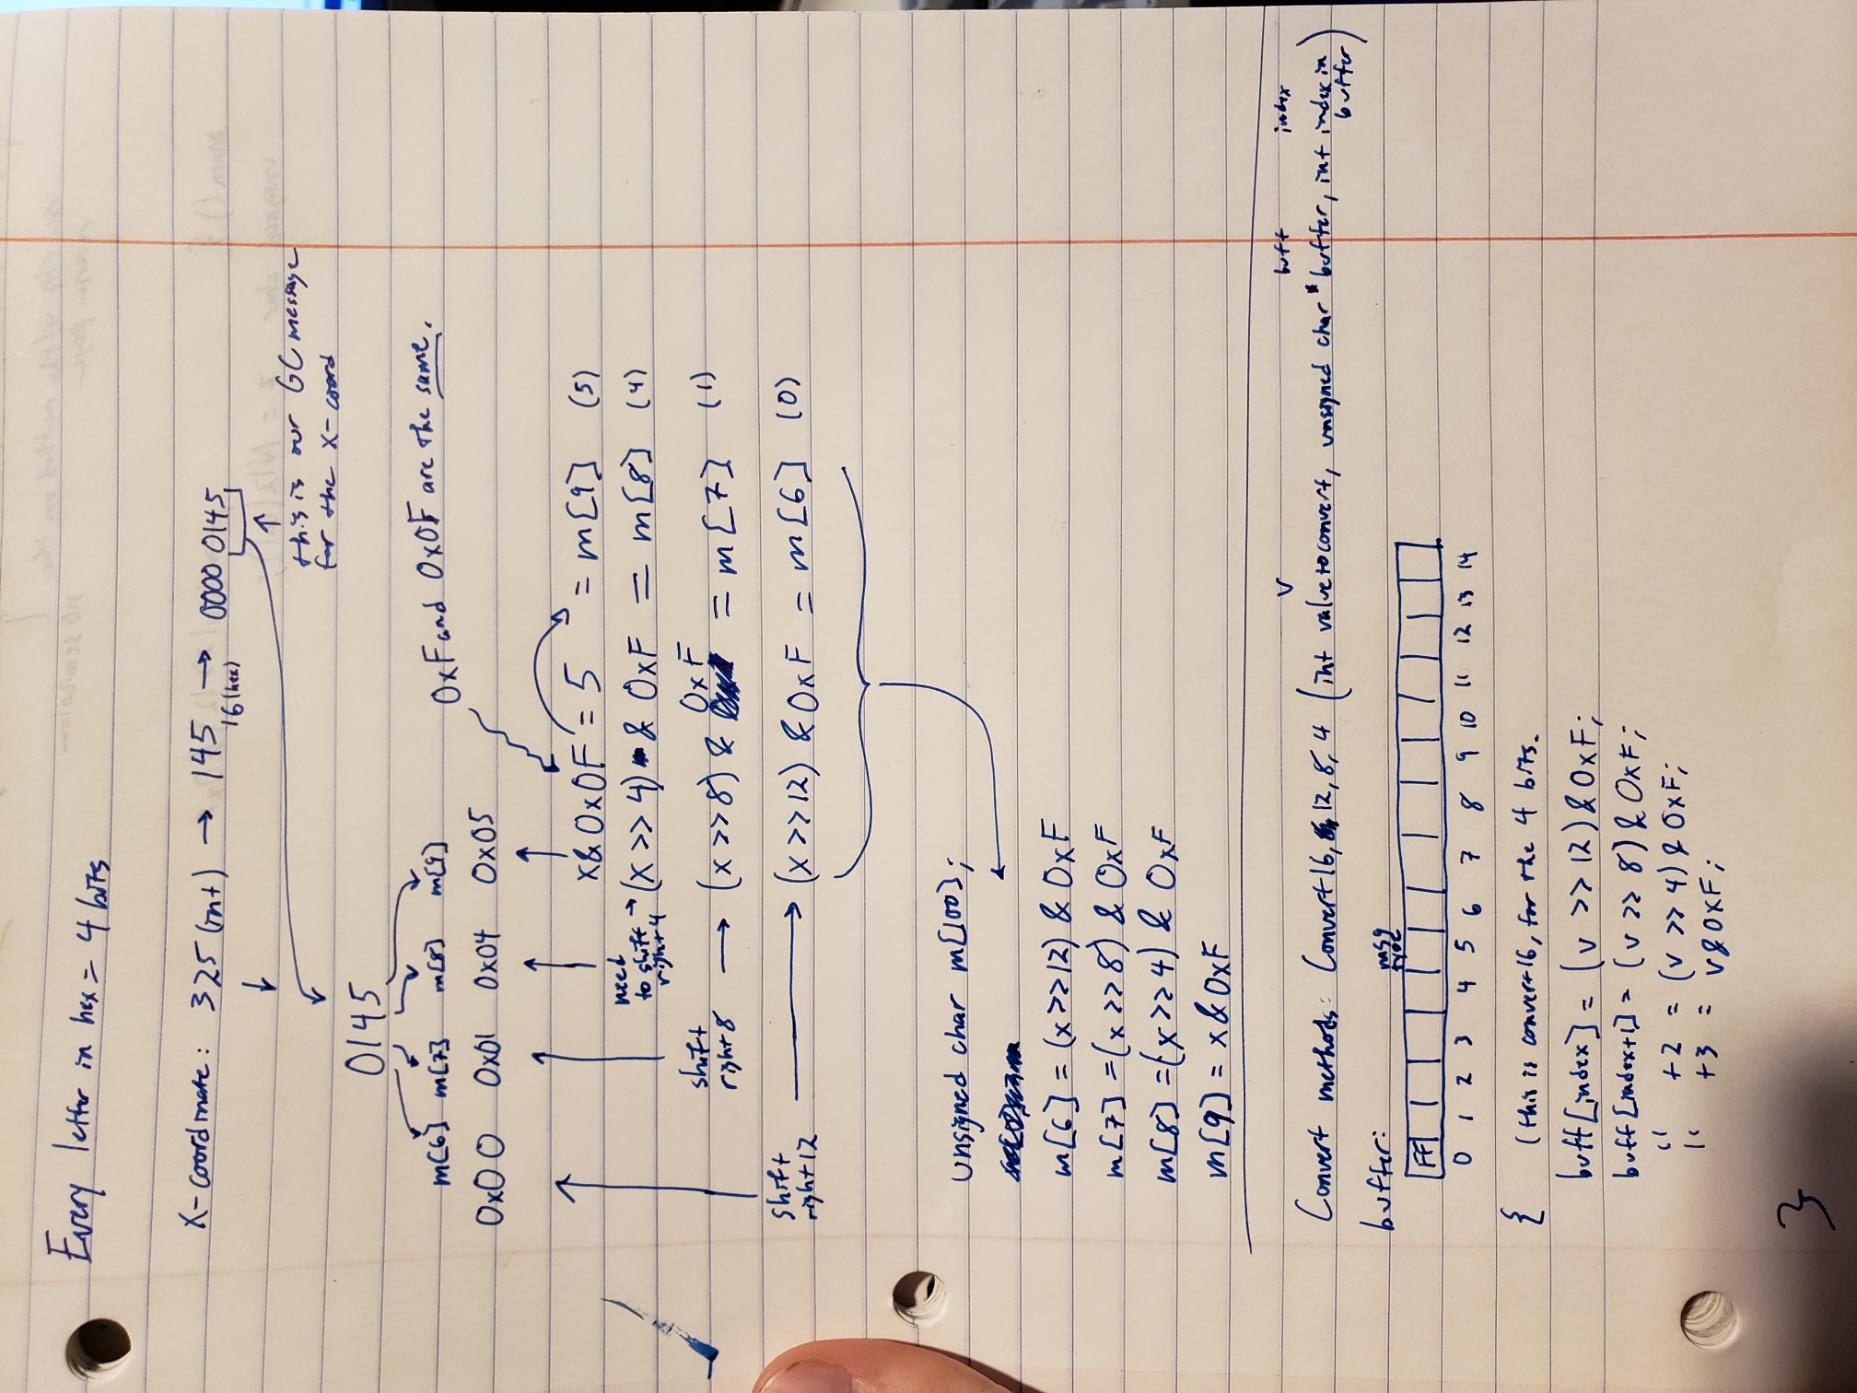 Every letter in hex = 4 bits
X-coordinate: 325 (int) → 145 16(hex) → 0000 0145
this is our GC message
for the X-coord
0145
m[6] m[7] m[8] m[9]
0xF and 0x0F are the same.
0x00 0x01 0x04 0x05
x & 0x0F = 5 = m[9] (5)
need
to shift
right 4
→ (x >> 4) & 0xF = m[8] (4)
shift
right 8
→ (x >> 8) & 0xF = m[7] (1)
shift
right 12
→ (x >> 12) & 0xF = m[6] (0)
unsigned char m[100];
m[6] = (x >> 12) & 0xF
m[7] = (x >> 8) & 0xF
m[8] = (x >> 4) & 0xF
m[9] = x & 0xF
v buff index
Convert methods: Convert 16, 12, 8, 4 (int value to convert, unsigned char * buffer, int index in
buffer)
buffer:
msg
type
FF
0 1 2 3 4 5 6 7 8 9 10 11 12 13 14
{ (this is convert 16, for the 4 bits.
buff [index] = (v >> 12) & 0xF;
buff [index+1] = (v >> 8) & 0xF;
" +2 = (v >> 4) & 0xF;
" +3 = v & 0xF;
}